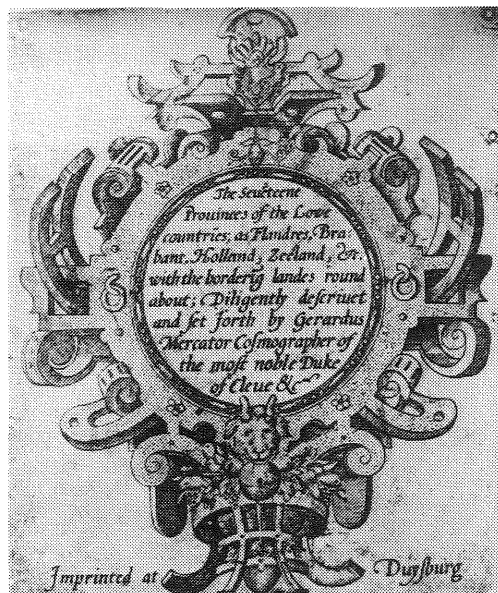 The Seuēteene
Prouinces of the Lowe
countries, as Flandres, Bra-
bant, Holland, Zeeland, &c.
with the borderīg landes round
about; Diligently deſcriuet
and ſet forth by Gerardus
Mercator Coſmographer of
the moſt noble Duke
of Cleue &c
Imprinted at Duyſburg